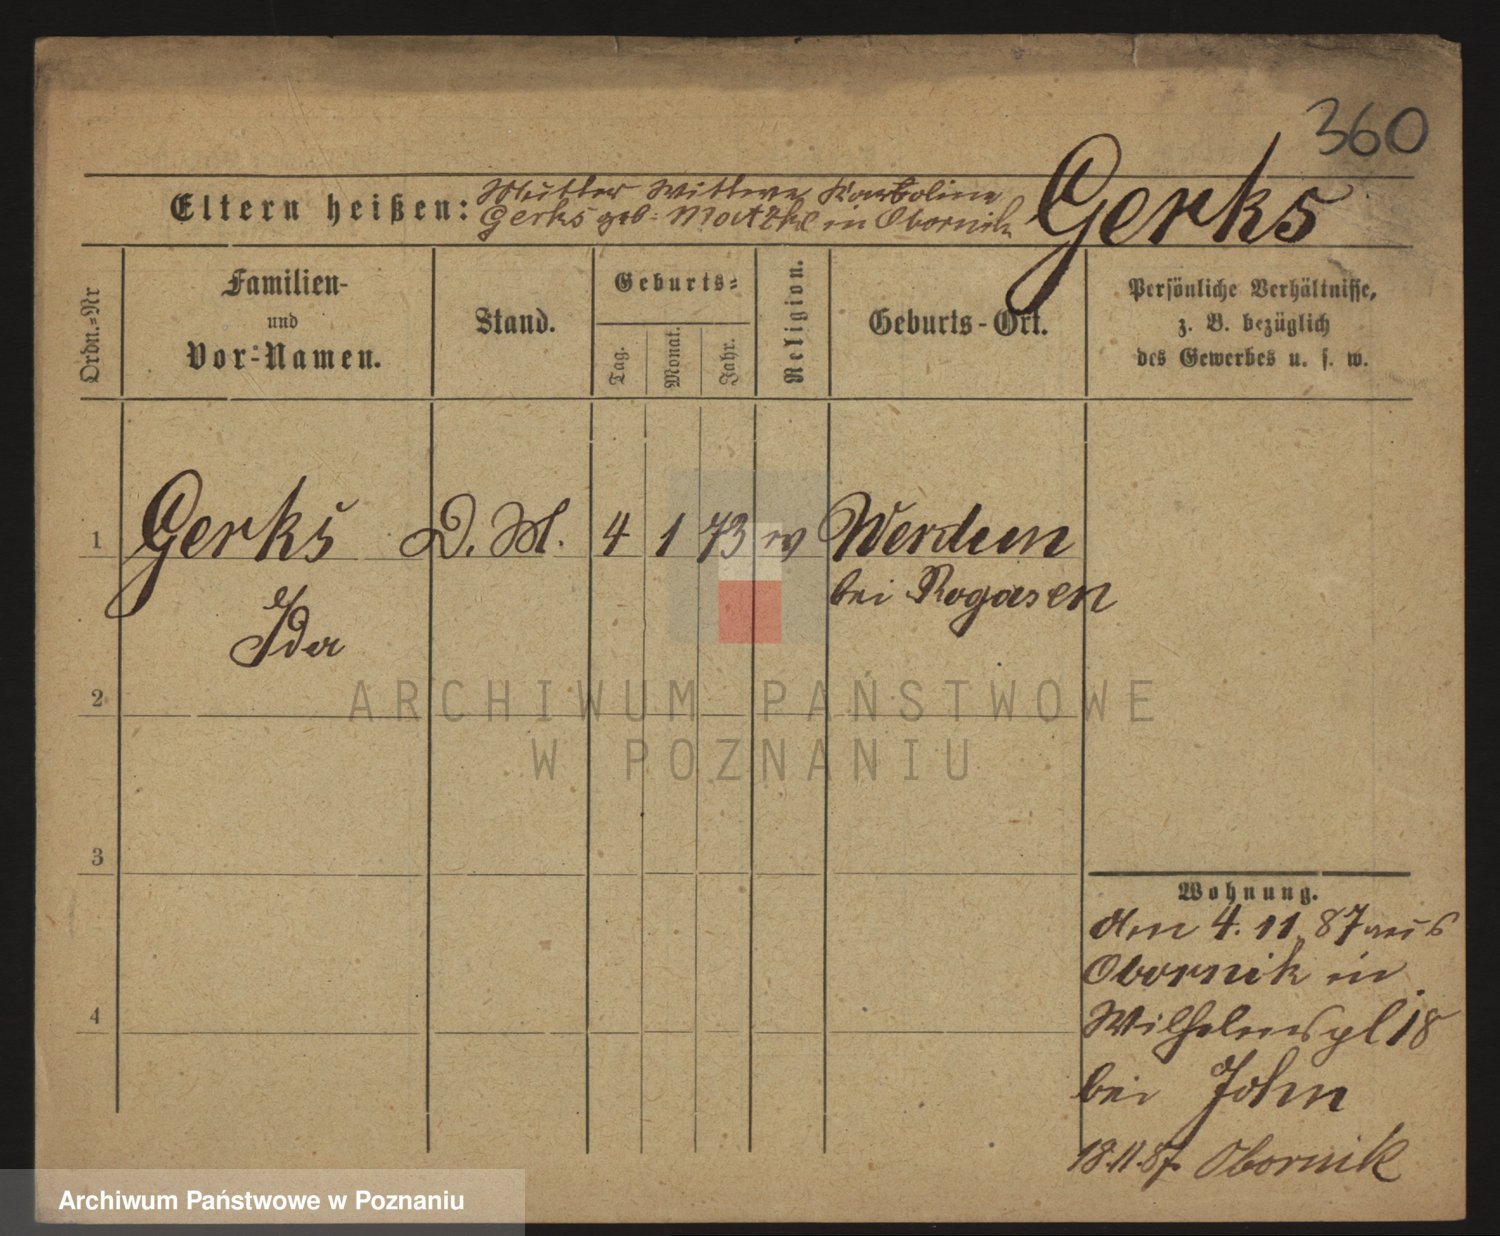 360
Eltern heißen: Mutter Wittwe Karoline
Gerks geb. Matzke in Obornik
Gerks
Ordn.=Nr
Familien-
und
Vor-Namen.
Stand.
Geburts=
Tag.
Monat.
Jahr.
Religion.
Geburts-Ort.
Persönliche Verhältnisse,
z. B. bezüglich
des Gewerbes u. s. w.
1 Gerks D. M. 4 1 73 ev Werdum
bei Rogasen
Ida
2
3
4
ARCHIWUM PAŃSTWOWE
W POZNANIU
Wohnung.
den 4. 11. 87 aus
Obornik in
Wilhelmspl 18
bei John
18.11.87. Obornik
Archiwum Państwowe w Poznaniu